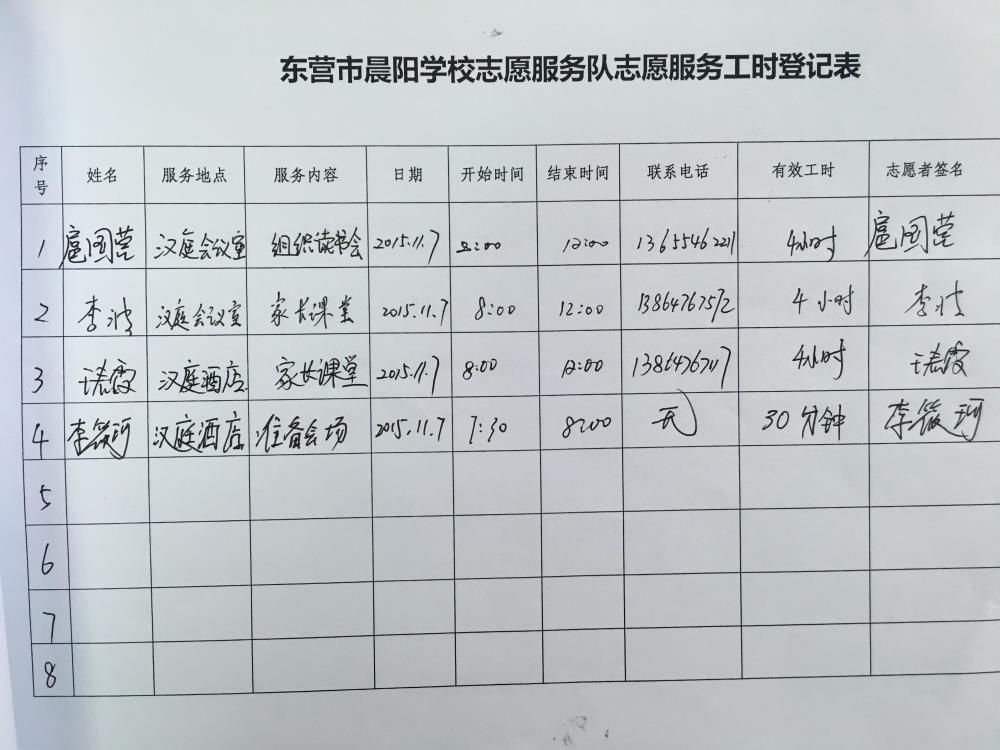 东营市晨阳学校志愿服务队志愿服务工时登记表
序号 姓名 服务地点 服务内容 日期 开始时间 结束时间 联系电话 有效工时 志愿者签名
1 扈国莹 汉庭会议室 组织读书会 2015.11.7 8:00 12:00 13655462211 4小时 扈国莹
2 李波 汉庭会议室 家长课堂 2015.11.7 8:00 12:00 13864767572 4小时 李波
3 汉庭酒店 家长课堂 2015.11.7 8:00 12:00 4小时
4 李筱珂 汉庭酒店 准备会场 2015.11.7 7:30 8:00 无 30分钟 李筱珂
5
6
7
8